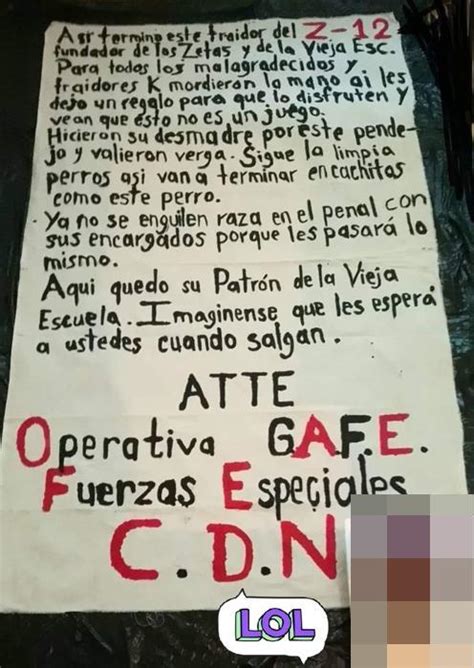 Así termino este traidor del Z-12
fundador de los Zetas y de la Vieja Esc.
Para todos los malagradecidos y
traidores K mordieron la mano ai les
dejo un regalo para que lo disfruten y
vean que ésto no es un juego.
Hicieron su desmadre por este pende-
jo y valieron verga. Sigue la limpia
perros asi van a terminar en cachitos
como este perro.
. Ya no se enguilen raza en el penal con
sus encargados porque les pasará lo
mismo.
Aqui quedo su Patrón de la Vieja
Escuela. Imaginense que les esperá
a ustedes cuando salgan.
ATTE
Operativa GAF.E.
Fuerzas Especiales
C.D.N
LOL